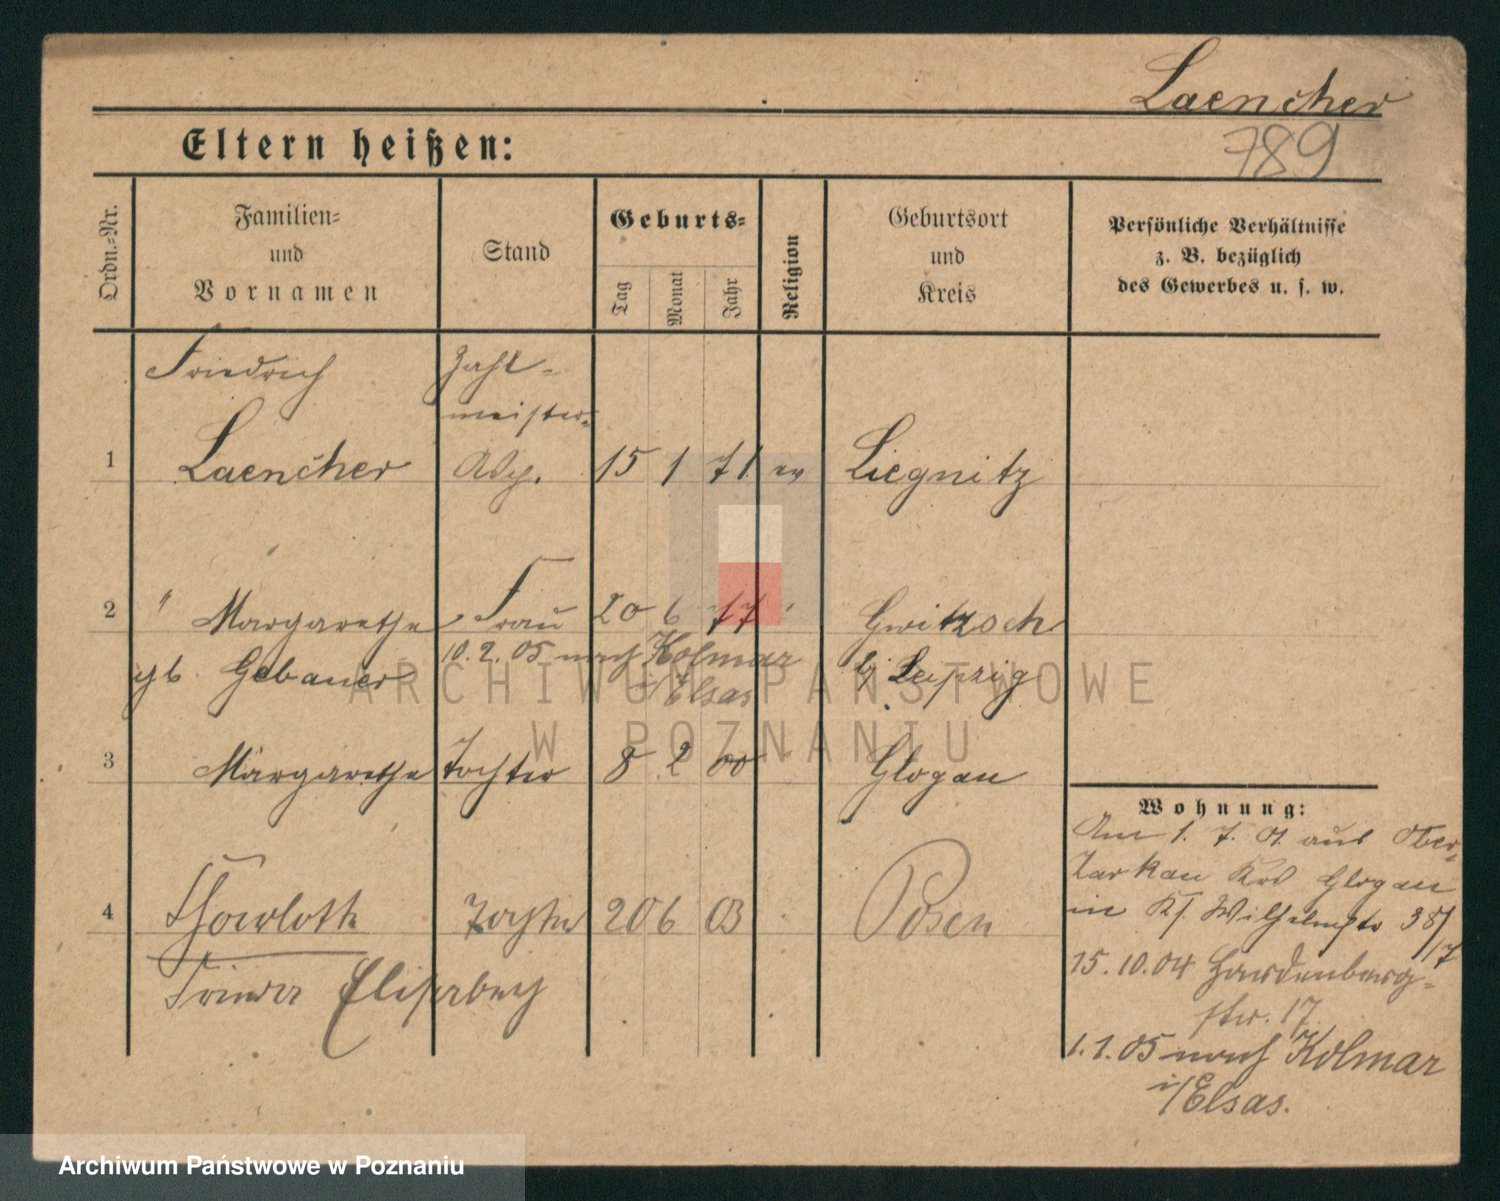 Laencher
789
Eltern heißen:
Ordn.=Nr.
Familien=
und
Vornamen
Stand
Geburts=
Tag
Monat
Jahr
Religion
Geburtsort
und
Kreis
Persönliche Verhältnisse
z. B. bezüglich
des Gewerbes u. s. w.
Friedrich Zahl-
meister-
1 Laencher Asp. 15 1 71 ev Liegnitz
2 " Margarethe Frau 20 6 77 ' 
10. 2. 05 nach Kolmar
i/Elsas
gb. Gebauer b/ Leipzig
3 Margarethe Tochter 8 2 00 Glogau
Wohnung:
Am 1. 7. 01 aus Ober-
Zarkau Krs Glogau
in Wilhelmstr 38/
17
4 Charlotte Tochter 20 6 03 Posen
Frieda Elisabeth
15. 10. 04 Hardenberg-
str. 17.
1. 1. 05 nach Kolmar
i/Elsas.
ARCHIWUM PAŃSTWOWE
W POZNANIU
Archiwum Państwowe w Poznaniu